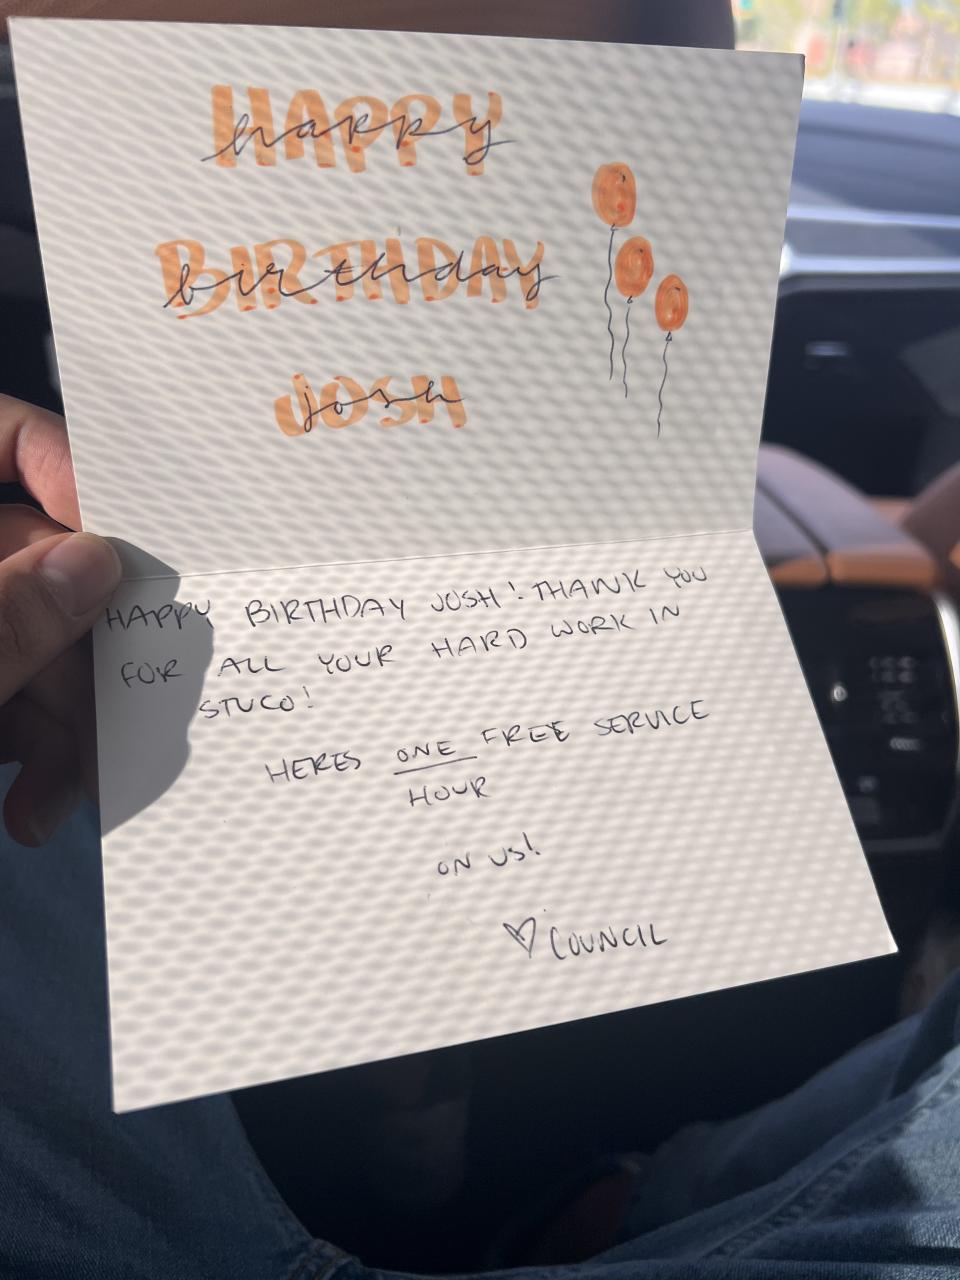 HAPPY
happy
BIRTHDAY
birthday
JOSH
josh
HAPPY BIRTHDAY JOSH! THANK YOU
FOR ALL YOUR HARD WORK IN
STUCO!
HERES ONE FREE SERVICE
HOUR
ON US!
♡ COUNCIL